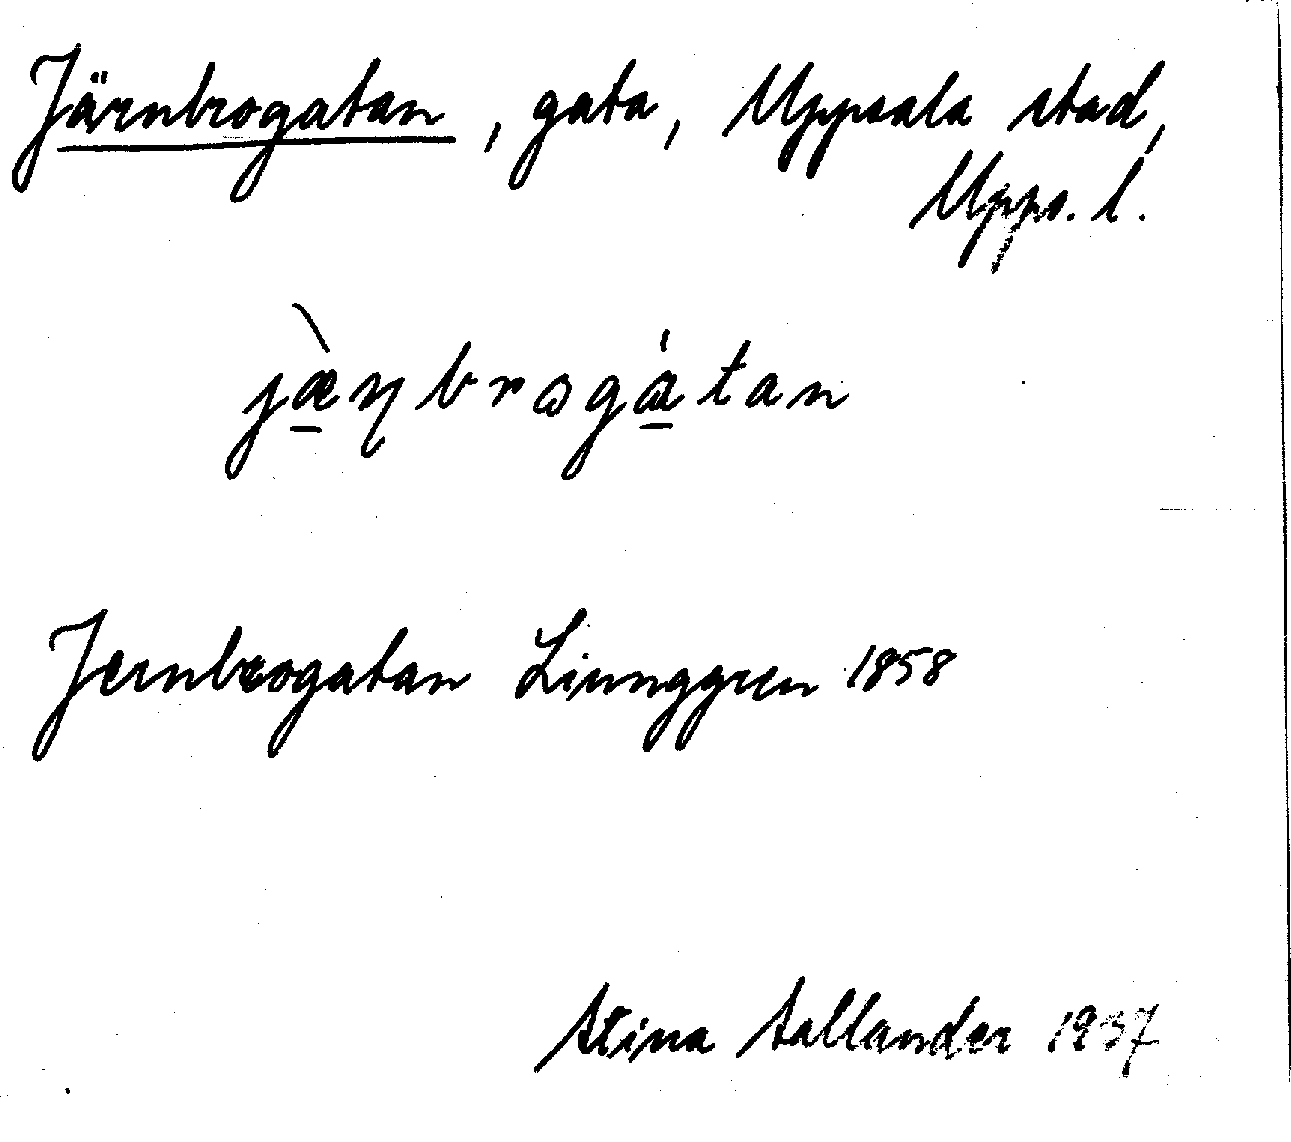 Järnbrogatan, gata, Uppsala stad,
Upps. l.
jæ̠̀ɳbrɷgà̠tan
Jernbrogatan Liunggren 1858
Stina Sallander 1937